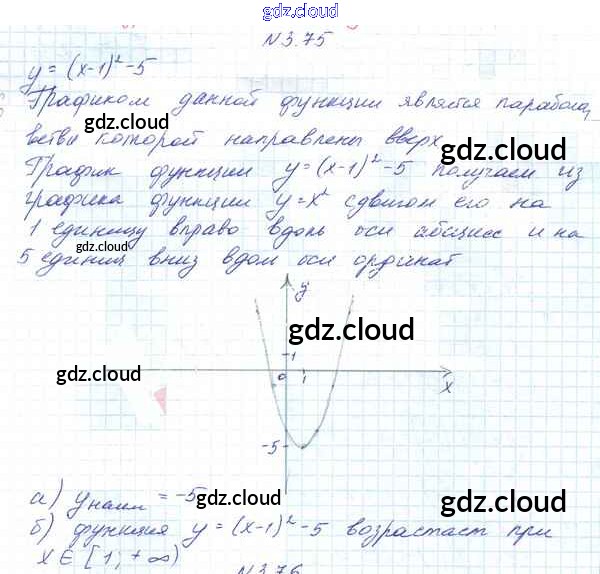 gdz.cloud
N 3.75
y = (x-1)² - 5
Графиком данной функции является парабола,
ветви которой направлены вверх
gdz.cloud
gdz.cloud
График функции y = (x-1)² - 5 получаем из
графика функции y = x² сдвигом его на
1 единицу вправо вдоль оси абсцисс и на
gdz.cloud
5 единиц вниз вдоль оси ординат
y
gdz.cloud
1
gdz.cloud
0 1 x
-5
а) y наим = -5
gdz.cloud
gdz.cloud
б) функция y = (x-1)² - 5 возрастает при
x ∈ [1; +∞)
N 3.76